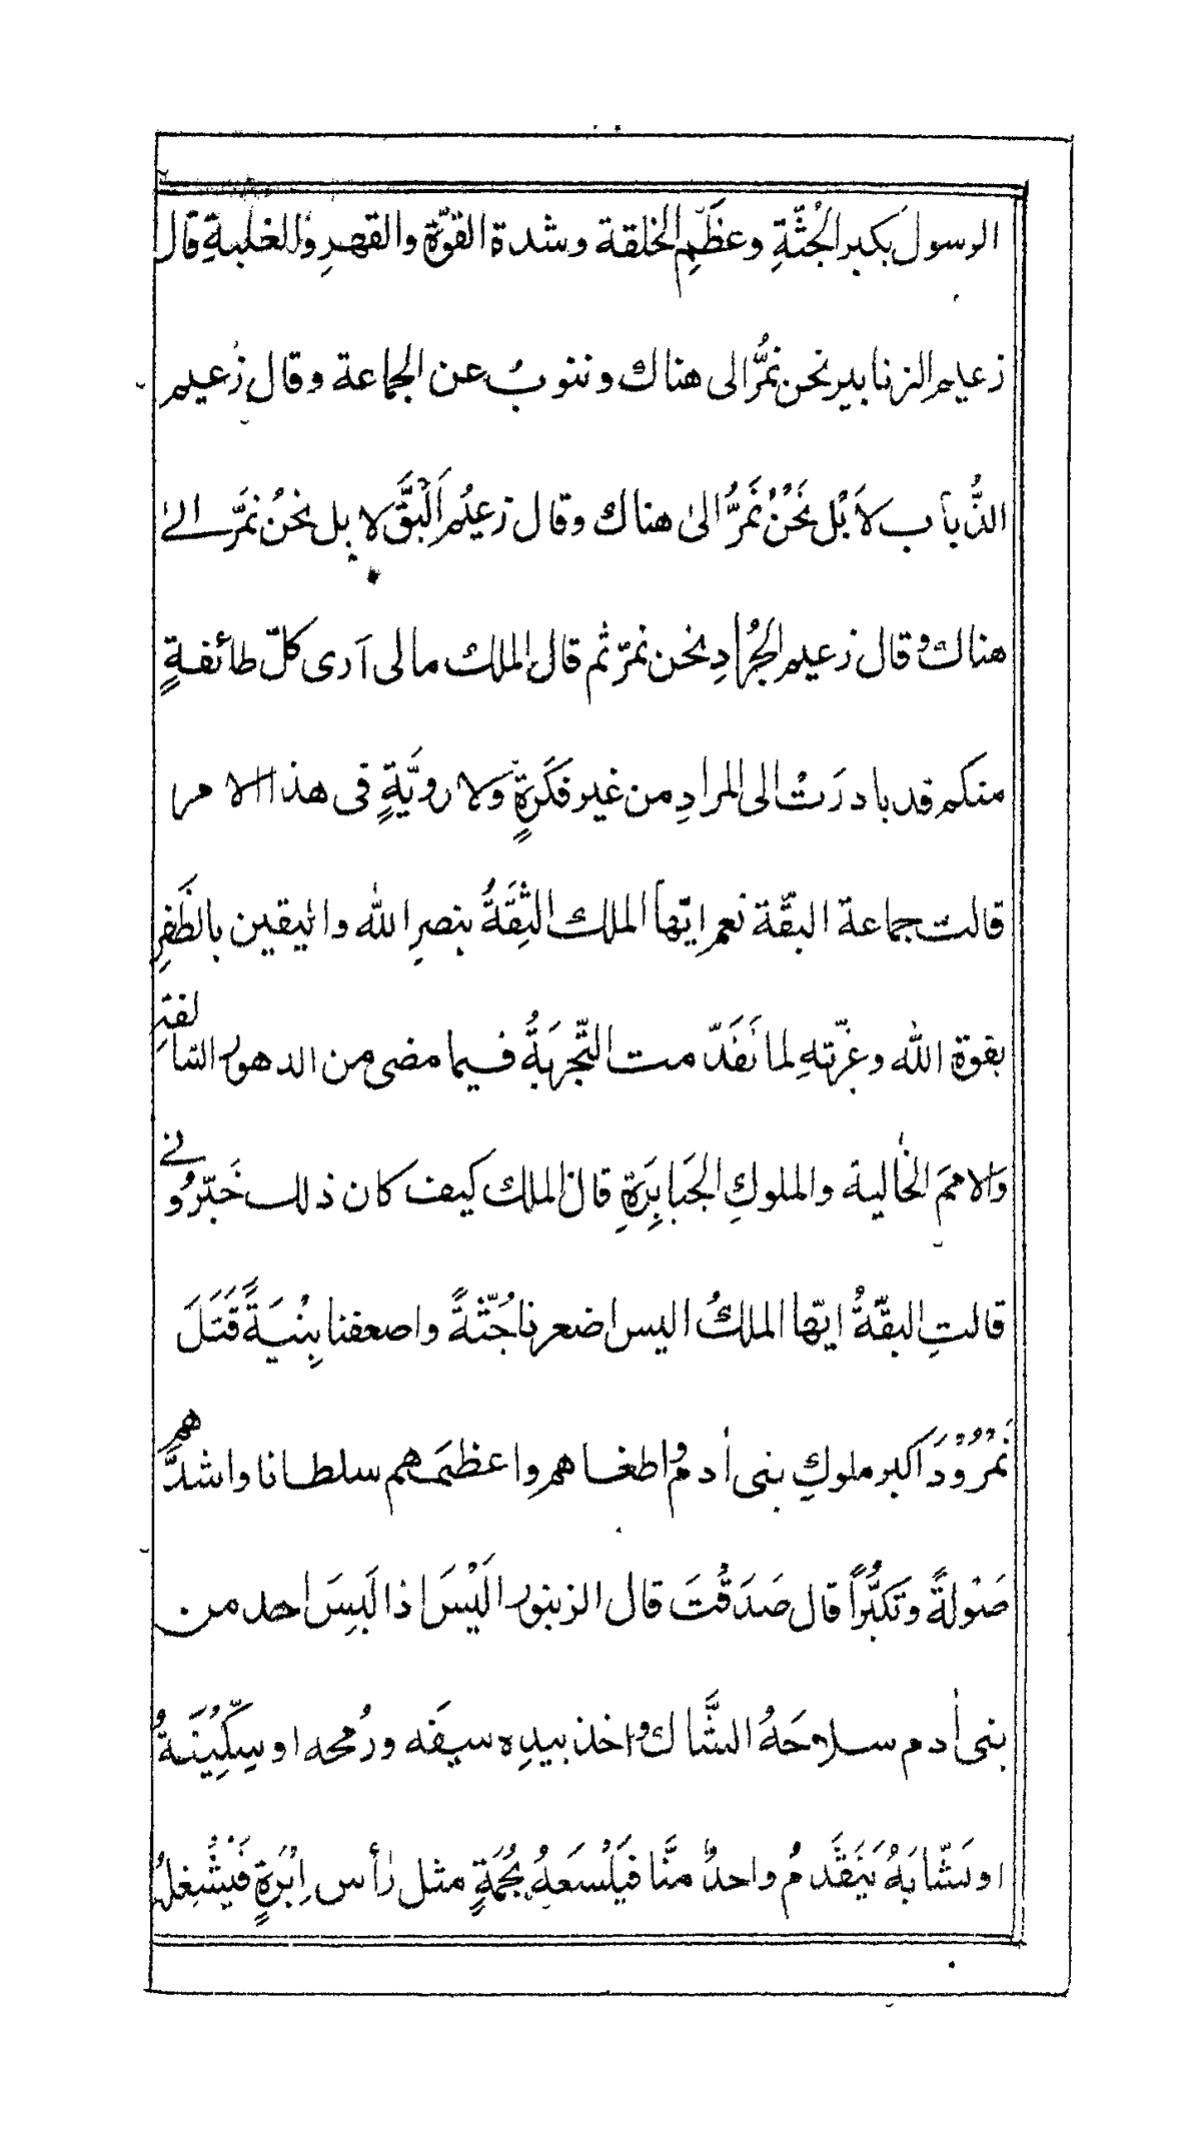 الرسول بكبر الجُثّةِ وعظَمِ الخلقة وشدة القوّةِ والقهرِ والغلبةِ قال
زعيم الزنابير نحن نمُرُّ الى هناك وننوبُ عن الجماعة وقال زعيم
الذُّباب لاَ بَلْ نَحْنُ نَمُرُّ الىٰ هناك وقال زعيُم اَلْبَقَّ لا بل نحنُ نَمَرَّ الىٰ
هناك وقال زعيم الجُرادِ نحن نمرّ ثم قال الملك مالى آرى كلّ طائفةٍ
منكم قد بادرَتْ الى المرادِ من غير فكَرَةٍ ولا رويَّةٍ فى هذا الامر
قالت جماعة البقّة نعم ايّها الملك الثِقَةُ بنصرِ الله واليقين بالظَفرِ
بقوة الله وعزّتهِ لما تَقَدّمت التّجربَةُ فيما مضى من الدهور السّالفةِ
والاممَ الخاليةِ والملوكِ الجَبابِرَةِ قال الملك كيف كان ذلك خَبّرُونى
قالتِ البقّةُ ايّها الملكُ اليس اضعرنا جُثّةً واضعفنا بِنْيَةً قَتَلَ
نَمْرُوْدَ اَكبر ملوكِ بنى اٰدمُ واطغاهم واعظمَهم سلطانا واشدَّهم
صَوْلةً وتَكَبُّراً قال صَدَقْتَ قال الزنبور اَلَيْسَ اذا لَبِسَ احد من
بنى اٰدم سلاحَهُ الشَّاكُ واخذ بيدِه سيفَه ورُمحه او سِكِّيْنَةُ
او نَشّابَهُ يَتَقَدَمُ واحدٌ منَّا فَيَلْسَعهُ بحُمَةٍ مثل رأس اِبْرَةٍ فَيَشْغِلُ